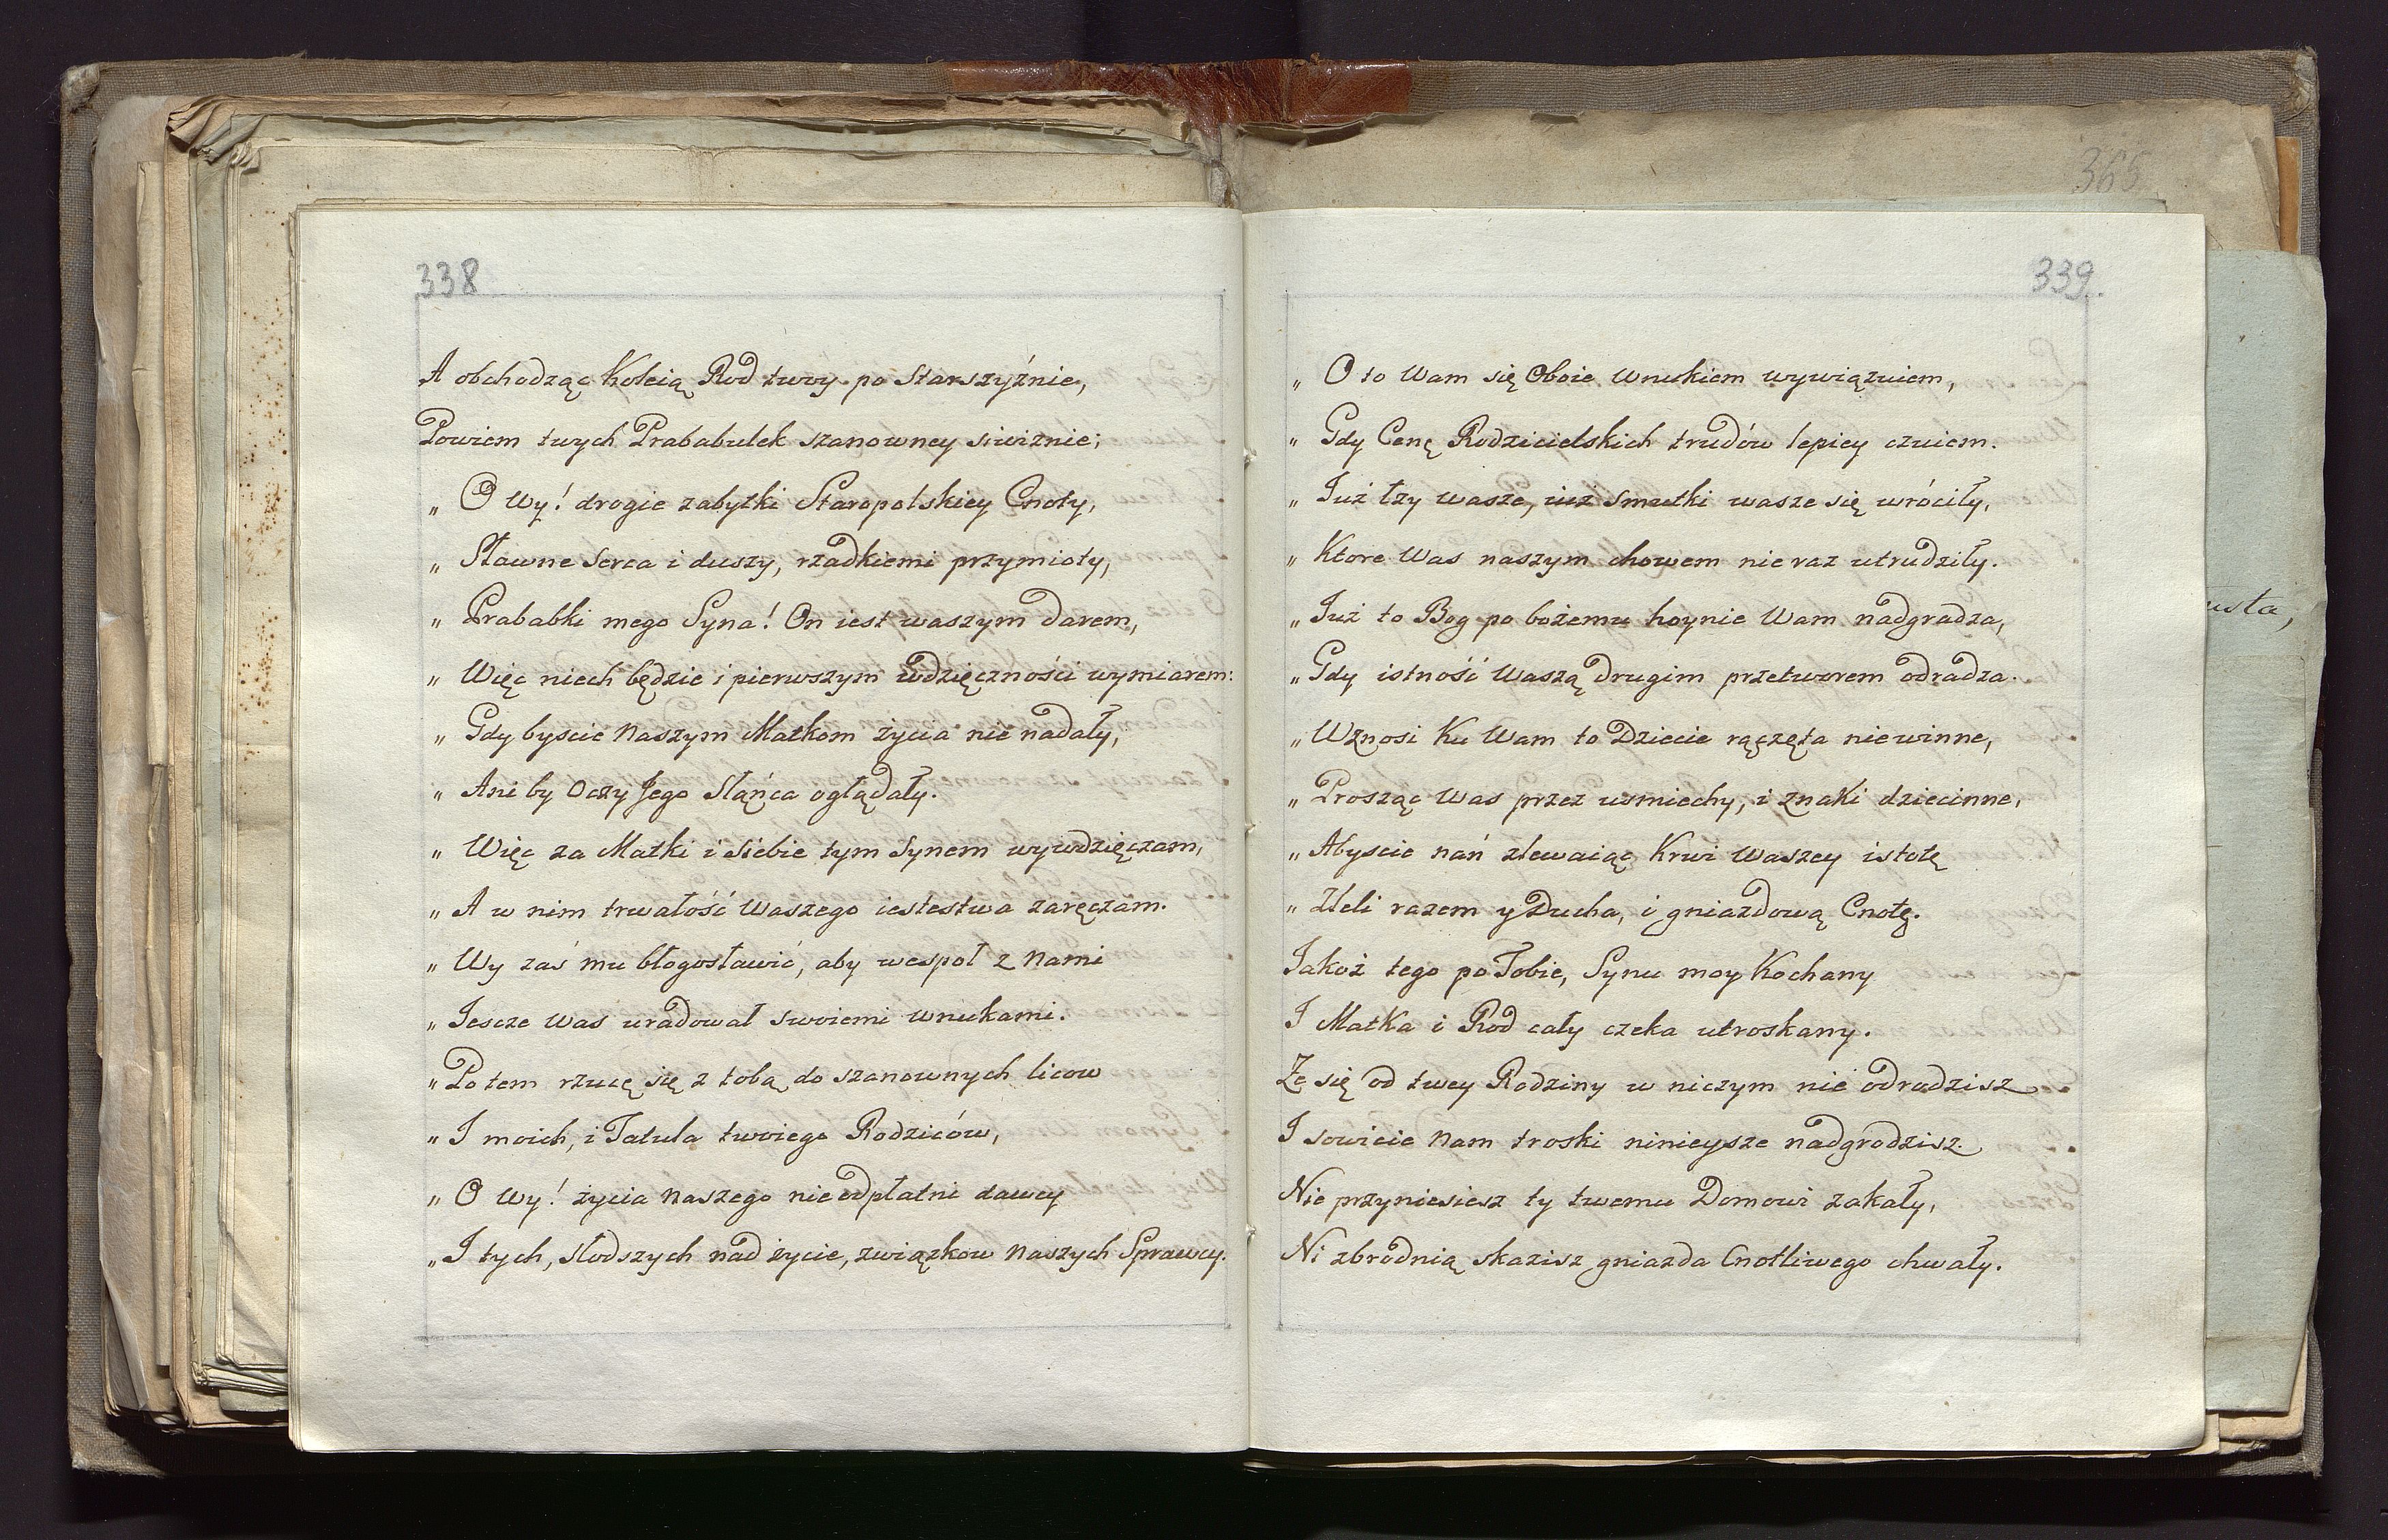 338
A obchodząc Koleią Rod twoy po Starszyźnie,
Powiem twych Prababulek szanowney siwiznie;
„ O Wy! drogie zabytki Staropolskiey Cnoty,
„ Sławne Serca i duszy, rzadkiemi przymioty,
„ Prababki mego Syna! On iest waszym darem,
„ Więc niech będzie i pierwszym wdzięczności wymiarem:
„ Gdy byscie Naszym Matkom życia nie nadały,
„ Ani by Oczy Jego Słańca oglądały.
„ Więc za Matki i siebie tym Synem wywdzięczam,
„ A w nim trwałość Waszego iestestwa zaręczam.
„ Wy zaś mu błogosławić, aby wespoł z Nami
„ Iescze Was uradował swoiemi Wnukami.
„ Potem rzucę się z tobą do szanownych licow
„ I moich, i Tatula twoiego Rodziców,
„ O Wy! życia Naszego nieodpłatni dawcy
„ I tych, słodszych nad życie, związkow Naszych Sprawcy.
365
339.
„ O to Wam się Oboie Wnukiem wywiązuiem,
„ Gdy Cenę Rodzicielskich trudów lepiey czuiem.
„ Już łzy wasze, iuż Smutki wasze się wróciły,
„ Ktore Was naszym chowem nie raz utrudziły.
„ Już to Bog po bożemu hoynie Wam nadgradza,
„ Gdy istność Waszą drugim przetworem odradza.
„ Wznosi Ku Wam to Dziecie rączęta niewinne,
„ Prosząc Was przez usmiechy, i znaki dziecinne,
„ Abyscie nań zlewaiąc Krwi Waszey istotę
„ Zleli razem y Ducha, i gniazdową Cnotę.
Iakoż tego po Tobie, Synu moy Kochany
I Matka i Rod cały czeka utroskany.
Że się od twey Rodziny w niczym nie odrodzisz
I sowicie Nam troski ninieysze nadgrodzisz.
Nie przyniesiesz ty twemu Domowi zakały,
Ni zbrodnią skazisz gniazda Cnotliwego chwały.
usta,